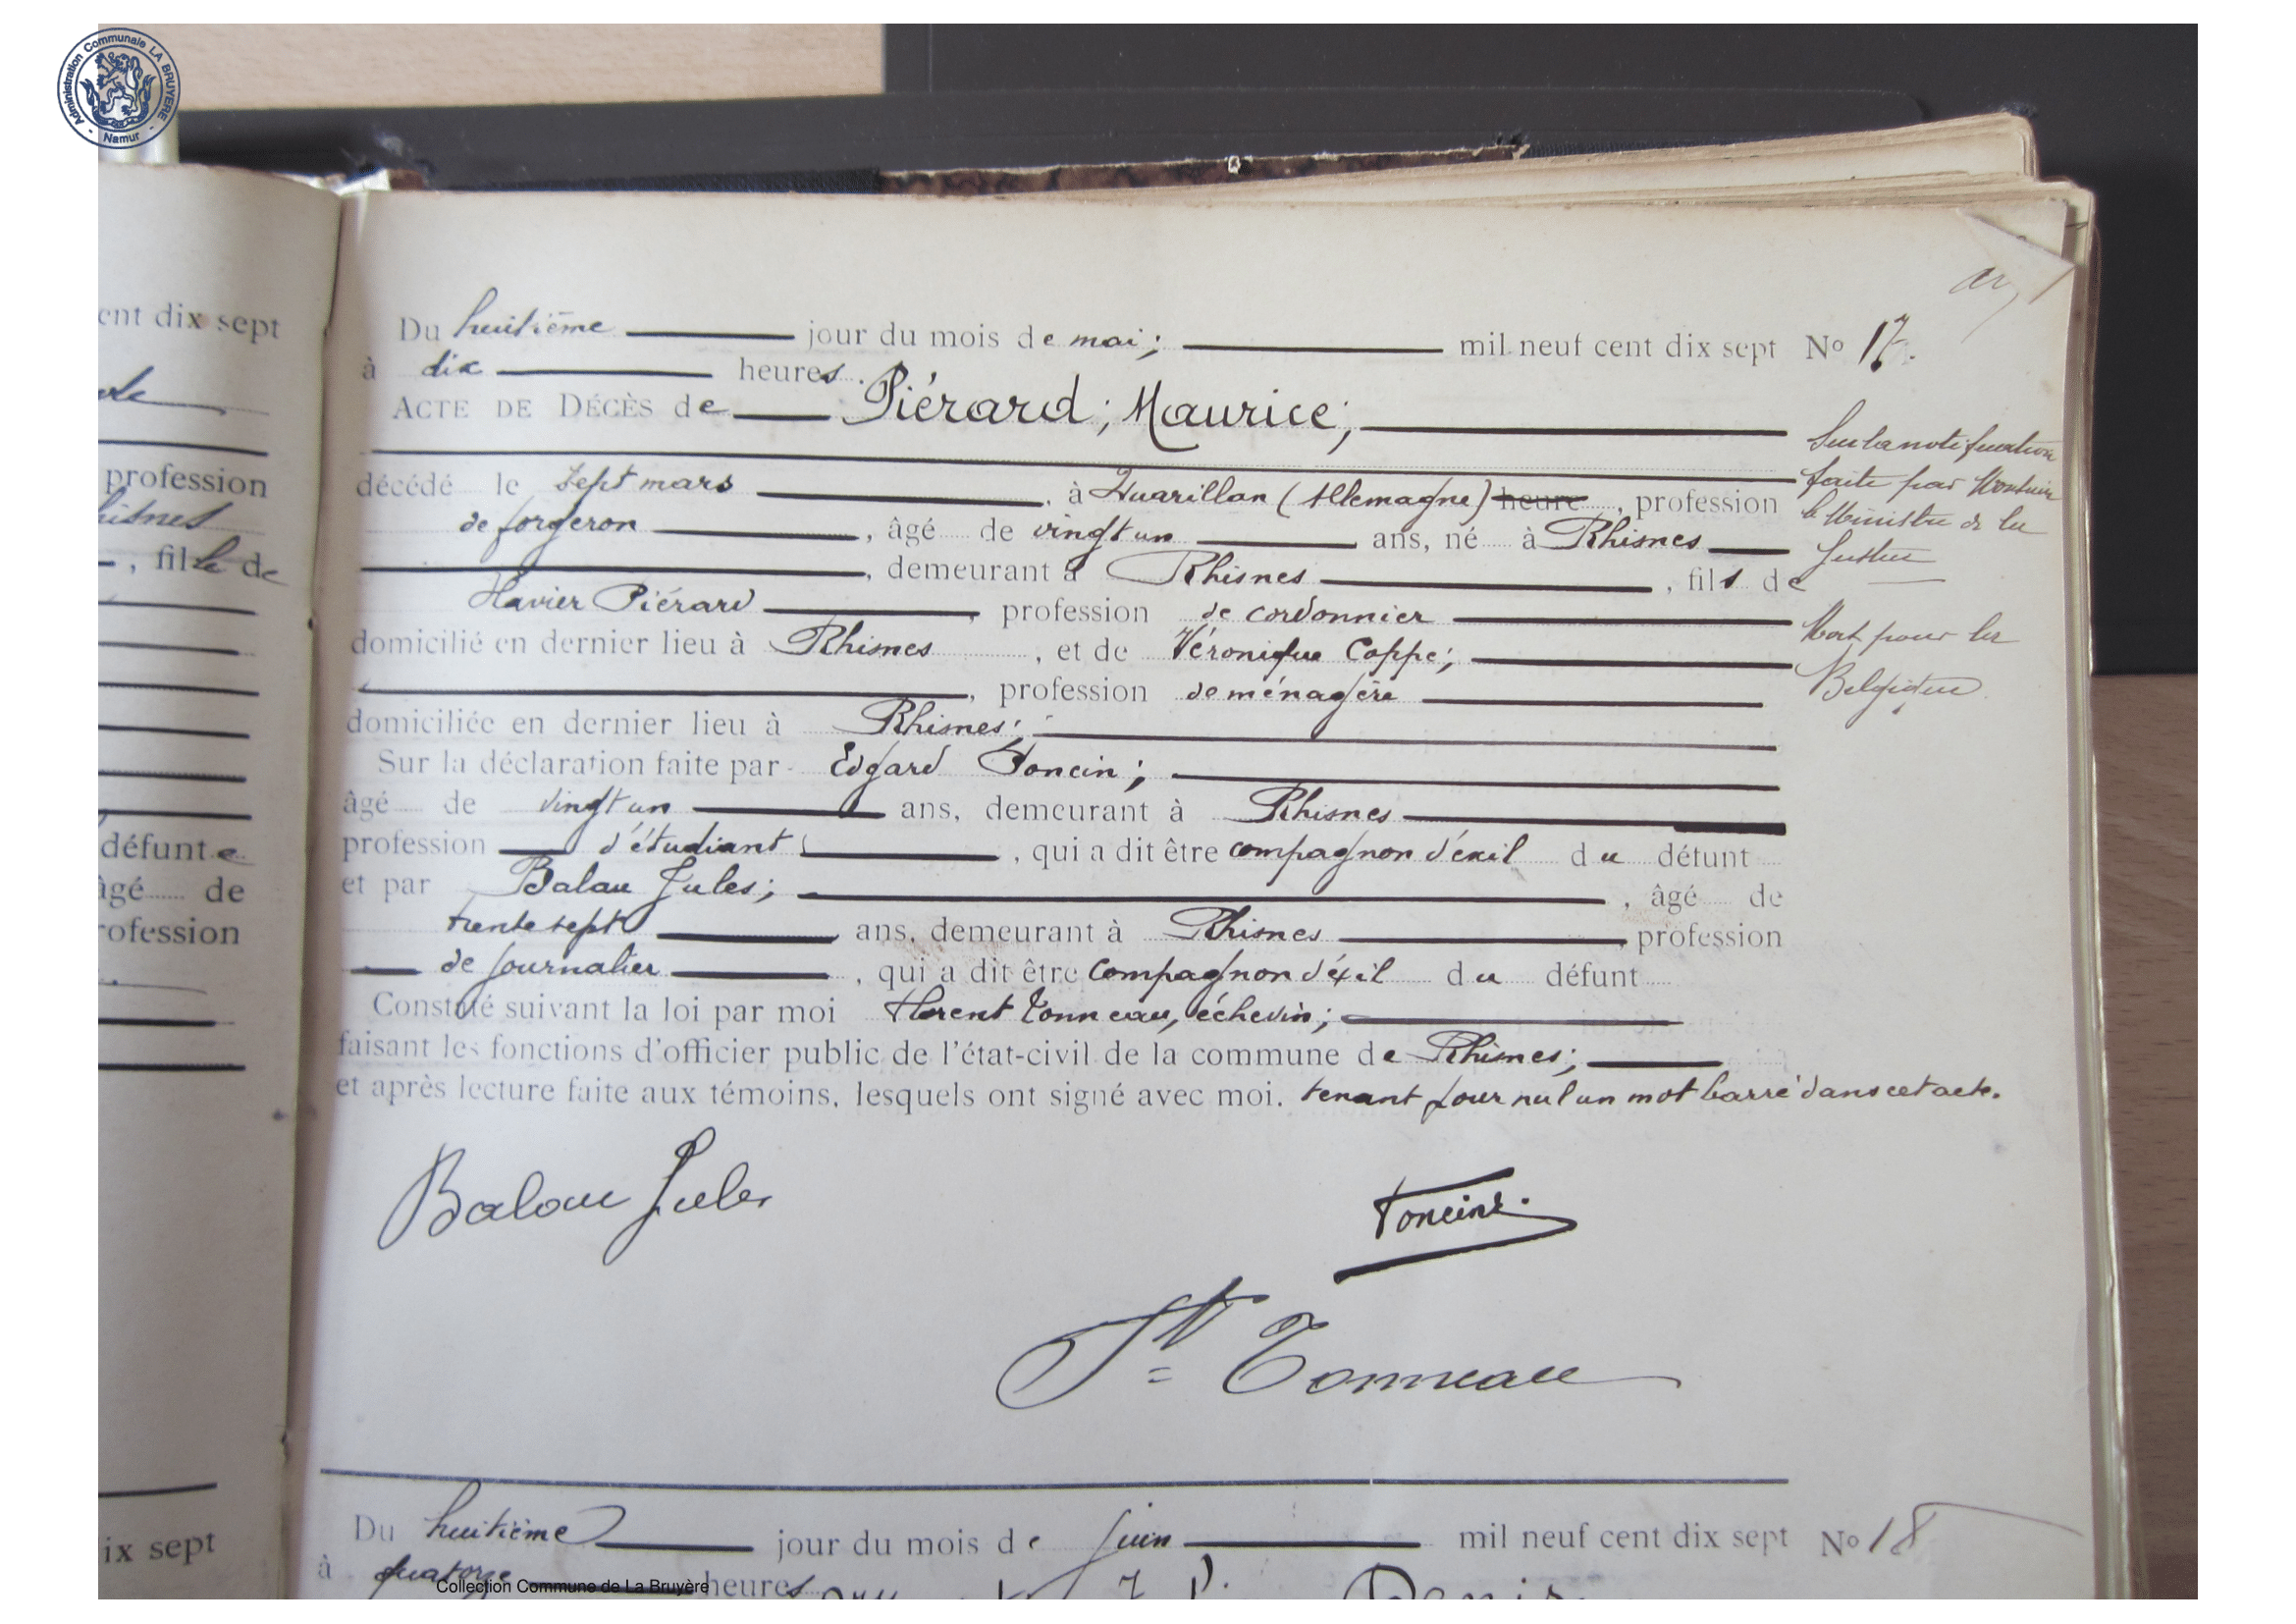 Administration Communale LA BRUYERE - Namur -
ent dix sept
profession
hisnes
, fille de
défunte
âgé de
rofession
ix sept
Du huitième jour du mois de mai; mil neuf cent dix sept No 17.
à dix heures.
ACTE DE DÉCÈS de Piérard; Maurice;
décédé le sept mars, à (Allemagne) heure, profession
de forgeron, âgé de vingt un ans, né à Rhisnes
, demeurant à Rhisnes, fils de
Xavier Piérard, profession de cordonnier
domicilié en dernier lieu à Rhisnes, et de Véronique Coppe;
, profession de ménagère
domiciliée en dernier lieu à Rhisnes;
Sur la déclaration faite par Edgard Toncin;
âgé de vingt un ans, demeurant à Rhisnes
profession d'étudiant, qui a dit être compagnon d'éxil du défunt
et par Balau Jules;, âgé de
trente sept ans, demeurant à Rhisnes, profession
de journalier, qui a dit être compagnon d'éxil du défunt
Constaté suivant la loi par moi Florent Tonneau, échevin;
faisant les fonctions d'officier public de l'état-civil de la commune de Rhisnes;
et après lecture faite aux témoins, lesquels ont signé avec moi. tenant pour nul un mot barré dans cet acte.
Sur la notification
faite par Monsieur
le Ministre de la
Justice
Mort pour la
Belgique.
Balau Jules
Toncin E.
Ft Tonneau
Du huitième jour du mois de juin mil neuf cent dix sept No 18
à quatorze heures
Denis
Collection Commune de La Bruyère